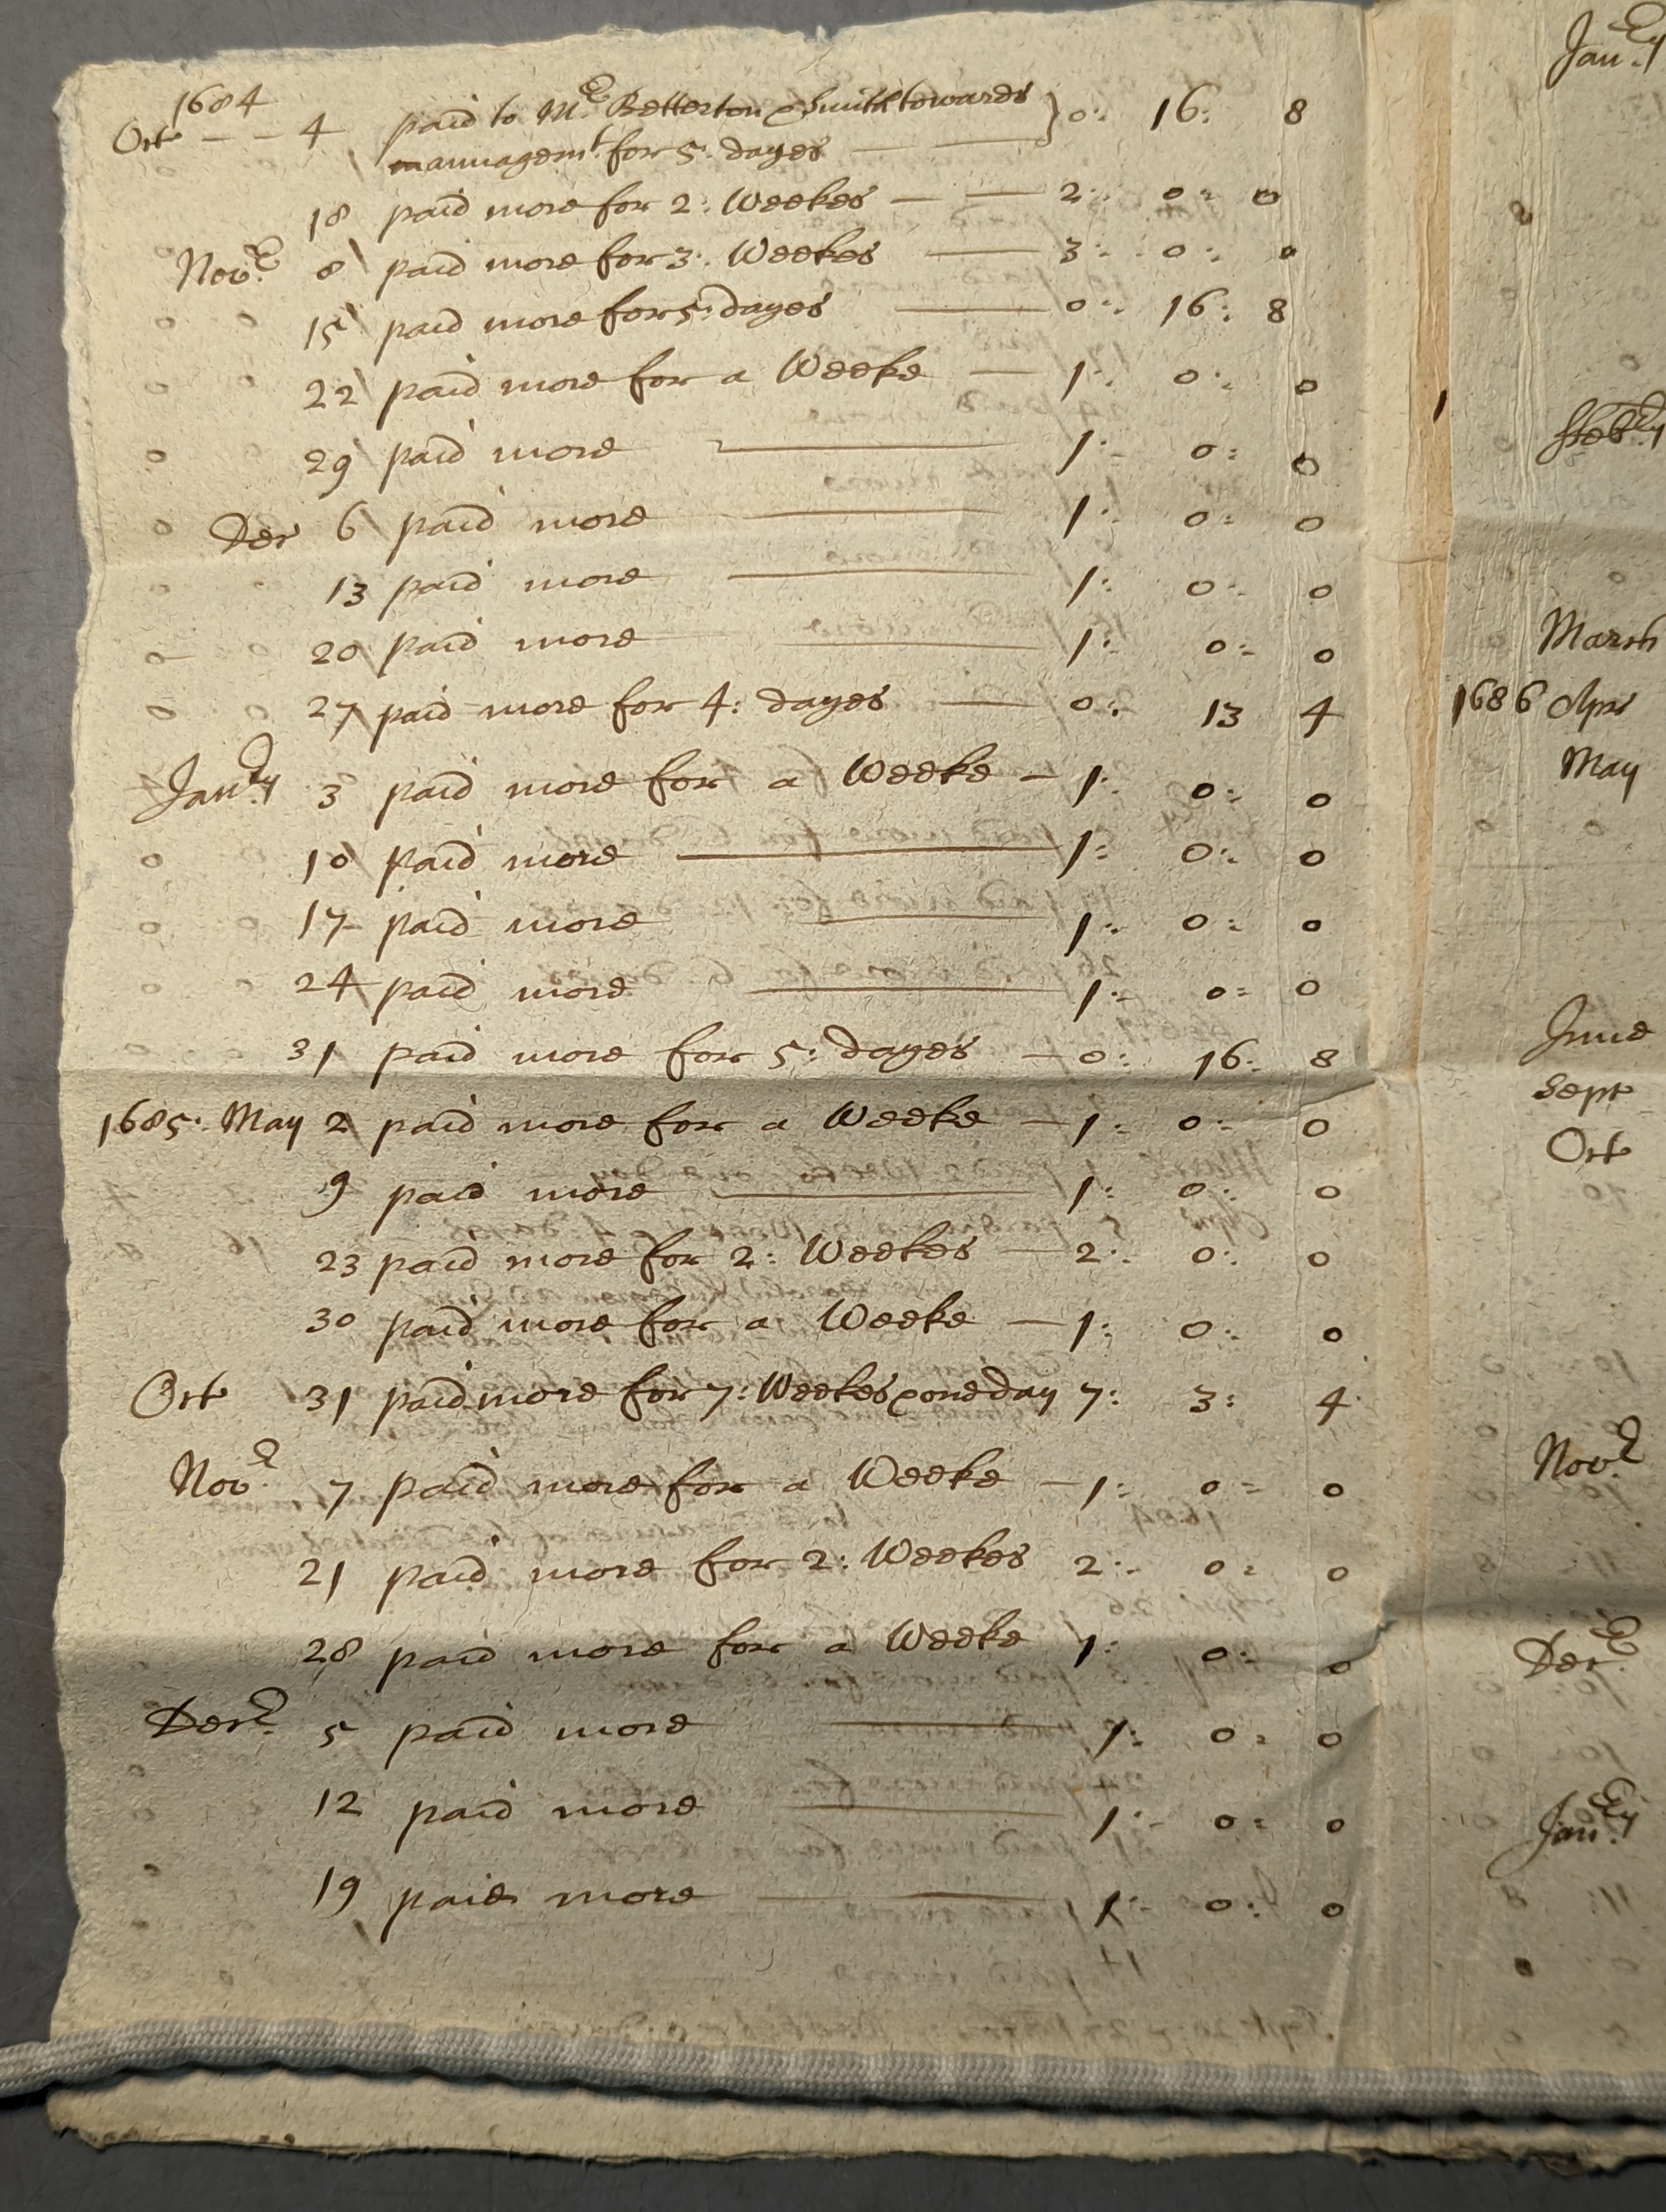 1684
Oct — — 4 paid to Mr. Betterton & Smith towards } 0: 16: 8
mannagemt. for 5: dayes — —
18 paid more for 2: Weekes — — 2: 0: 0
Novr. 8 paid more for 3: Weekes — 3: 0: 0
15 paid more for 5: dayes — 0: 16: 8
22 paid more for a Weeke — 1: 0: 0
29 paid more — 1: 0: 0
Dec 6 paid more — 1: 0: 0
13 paid more — 1: 0: 0
20 paid more — 1: 0: 0
27 paid more for 4: dayes — 0: 13 4
Janry. 3 paid more for a Weeke — 1: 0: 0
10 paid more — 1: 0: 0
17 paid more — 1: 0: 0
24 paid more — 1: 0: 0
31 paid more for 5: dayes — 0: 16: 8
1685: May 2 paid more for a Weeke — 1: 0: 0
9 paid more — 1: 0: 0
23 paid more for 2: Weekes — 2: 0: 0
30 paid more for a Weeke — 1: 0: 0
Oct 31 paid more for 7: Weekes & one day 7: 3: 4
Novr. 7 paid more for a Weeke — 1: 0: 0
21 paid more for 2: Weekes 2: 0: 0
28 paid more for a Weeke 1: 0: 0
Decr. 5 paid more — 1: 0: 0
12 paid more — 1: 0: 0
19 paid more — 1: 0: 0
Janry
ffebry
March
1686 Apr
May
June
Sept
Oct
Novr
Decr.
Janry